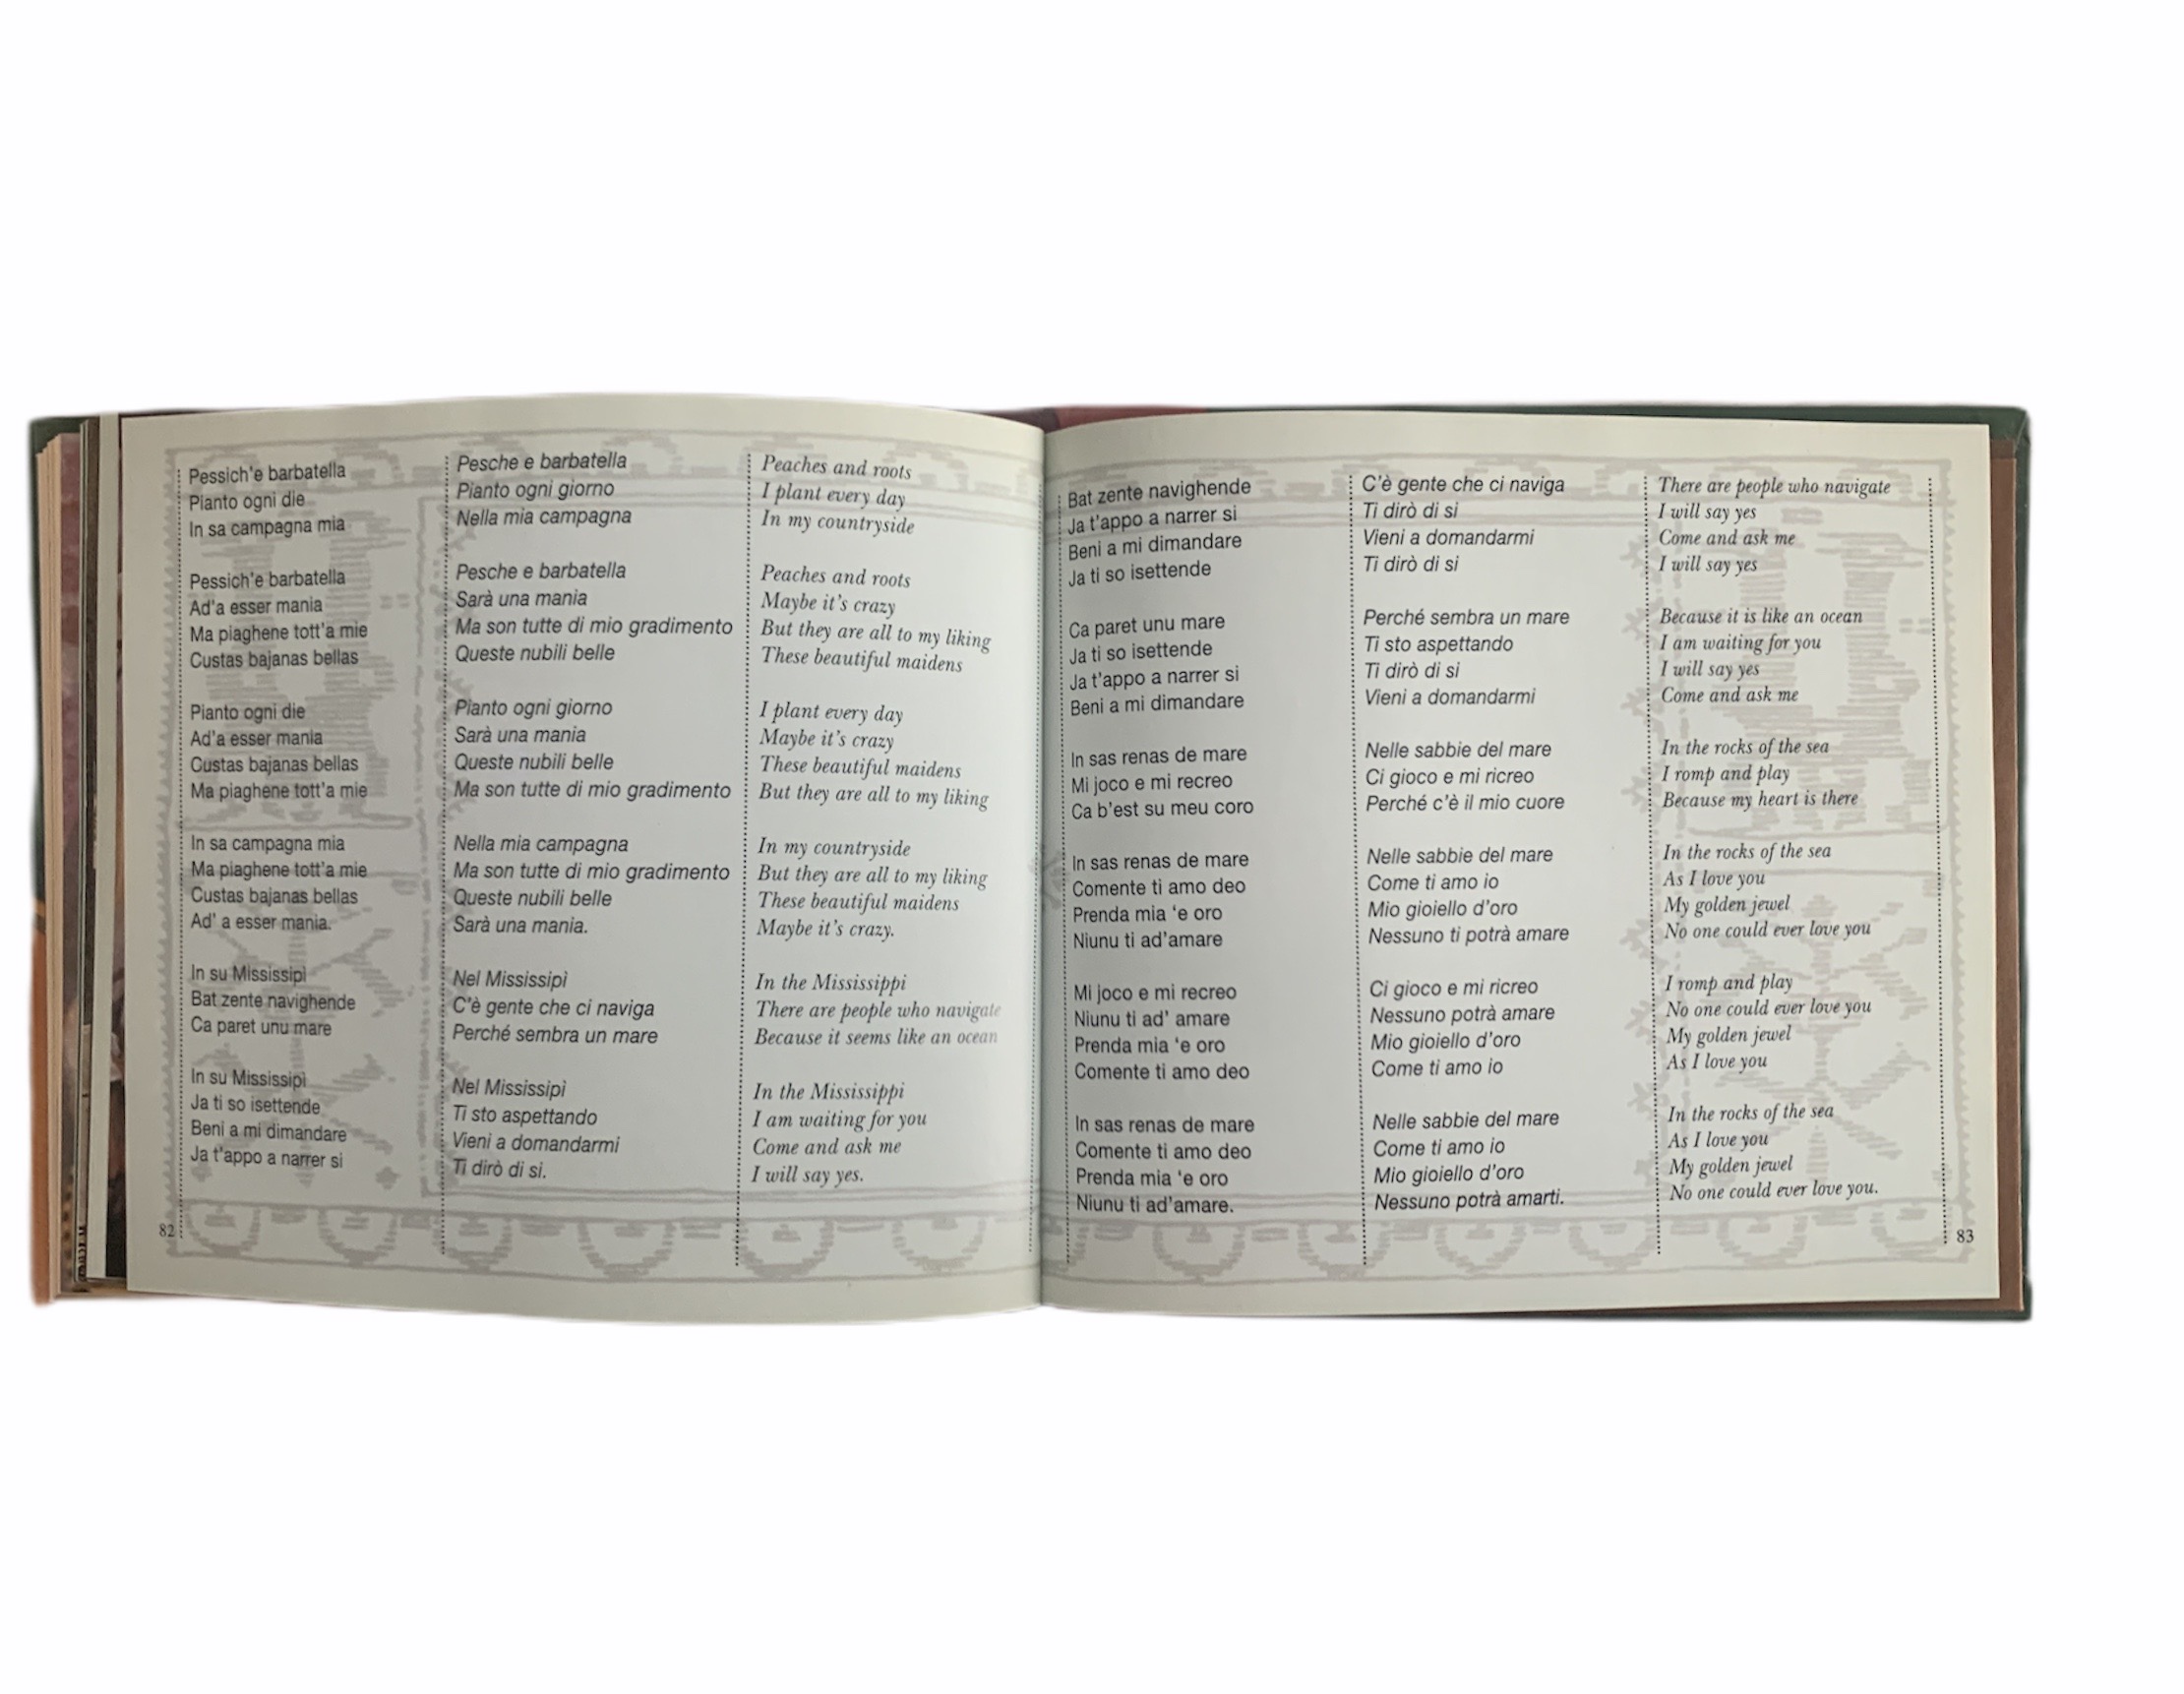 Pessich'e barbatella
Pianto ogni die
In sa campagna mia
Pessich'e barbatella
Ad'a esser mania
Ma piaghene tott'a mie
Custas bajanas bellas
Pianto ogni die
Ad'a esser mania
Custas bajanas bellas
Ma piaghene tott'a mie
In sa campagna mia
Ma piaghene tott'a mie
Custas bajanas bellas
Ad' a esser mania.
In su Mississipì
Bat zente navighende
Ca paret unu mare
In su Mississipì
Ja ti so isettende
Beni a mi dimandare
Ja t'appo a narrer si
82
Pesche e barbatella
Pianto ogni giorno
Nella mia campagna
Pesche e barbatella
Sarà una mania
Ma son tutte di mio gradimento
Queste nubili belle
Pianto ogni giorno
Sarà una mania
Queste nubili belle
Ma son tutte di mio gradimento
Nella mia campagna
Ma son tutte di mio gradimento
Queste nubili belle
Sarà una mania.
Nel Mississipì
C'è gente che ci naviga
Perché sembra un mare
Nel Mississipì
Ti sto aspettando
Vieni a domandarmi
Ti dirò di si.
Peaches and roots
I plant every day
In my countryside
Peaches and roots
Maybe it's crazy
But they are all to my liking
These beautiful maidens
I plant every day
Maybe it's crazy
These beautiful maidens
But they are all to my liking
In my countryside
But they are all to my liking
These beautiful maidens
Maybe it's crazy.
In the Mississippi
There are people who navigate
Because it seems like an ocean
In the Mississippi
I am waiting for you
Come and ask me
I will say yes.
Bat zente navighende
Ja t'appo a narrer si
Beni a mi dimandare
Ja ti so isettende
Ca paret unu mare
Ja ti so isettende
Ja t'appo a narrer si
Beni a mi dimandare
In sas renas de mare
Mi joco e mi recreo
Ca b'est su meu coro
In sas renas de mare
Comente ti amo deo
Prenda mia 'e oro
Niunu ti ad'amare
Mi joco e mi recreo
Niunu ti ad' amare
Prenda mia 'e oro
Comente ti amo deo
In sas renas de mare
Comente ti amo deo
Prenda mia 'e oro
Niunu ti ad'amare.
C'è gente che ci naviga
Ti dirò di si
Vieni a domandarmi
Ti dirò di si
Perché sembra un mare
Ti sto aspettando
Ti dirò di si
Vieni a domandarmi
Nelle sabbie del mare
Ci gioco e mi ricreo
Perché c'è il mio cuore
Nelle sabbie del mare
Come ti amo io
Mio gioiello d'oro
Nessuno ti potrà amare
Ci gioco e mi ricreo
Nessuno potrà amare
Mio gioiello d'oro
Come ti amo io
Nelle sabbie del mare
Come ti amo io
Mio gioiello d'oro
Nessuno potrà amarti.
There are people who navigate
I will say yes
Come and ask me
I will say yes
Because it is like an ocean
I am waiting for you
I will say yes
Come and ask me
In the rocks of the sea
I romp and play
Because my heart is there
In the rocks of the sea
As I love you
My golden jewel
No one could ever love you
I romp and play
No one could ever love you
My golden jewel
As I love you
In the rocks of the sea
As I love you
My golden jewel
No one could ever love you.
83